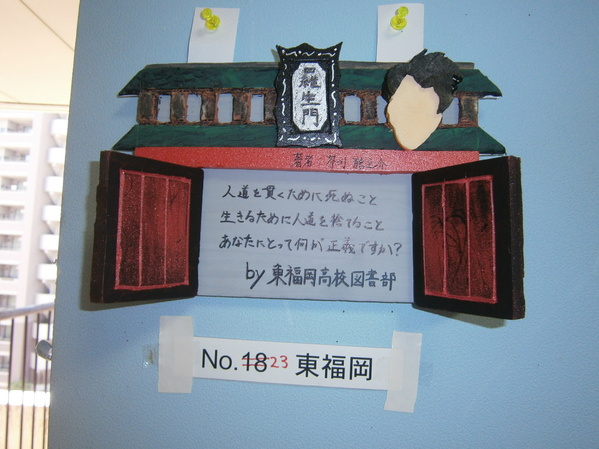 羅生門
著者 芥川龍之介
人道を貫くために死ぬこと
生きるために人道を捨てること
あなたにとって何が正義ですか?
by 東福岡高校図書部
No.18 23 東福岡